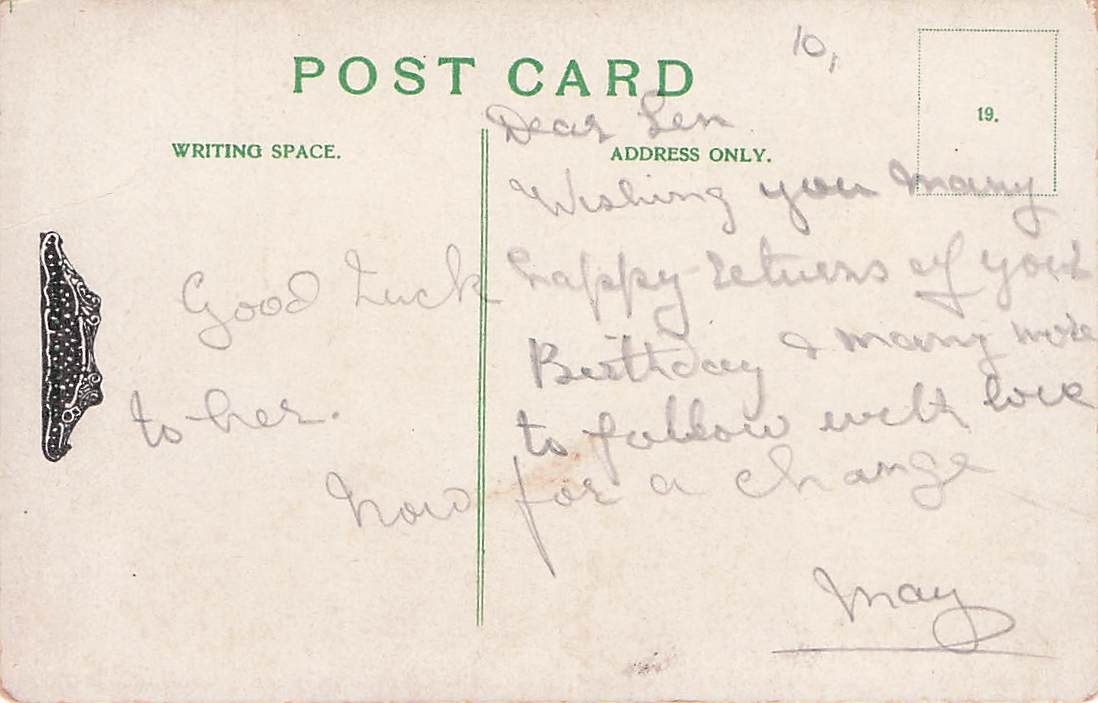 POST CARD
10,
19.
WRITING SPACE.
ADDRESS ONLY.
Dear Len
Wishing you many
happy returns of your
Birthday & many more
to follow with love
May
Good Luck
to her.
Now for a change